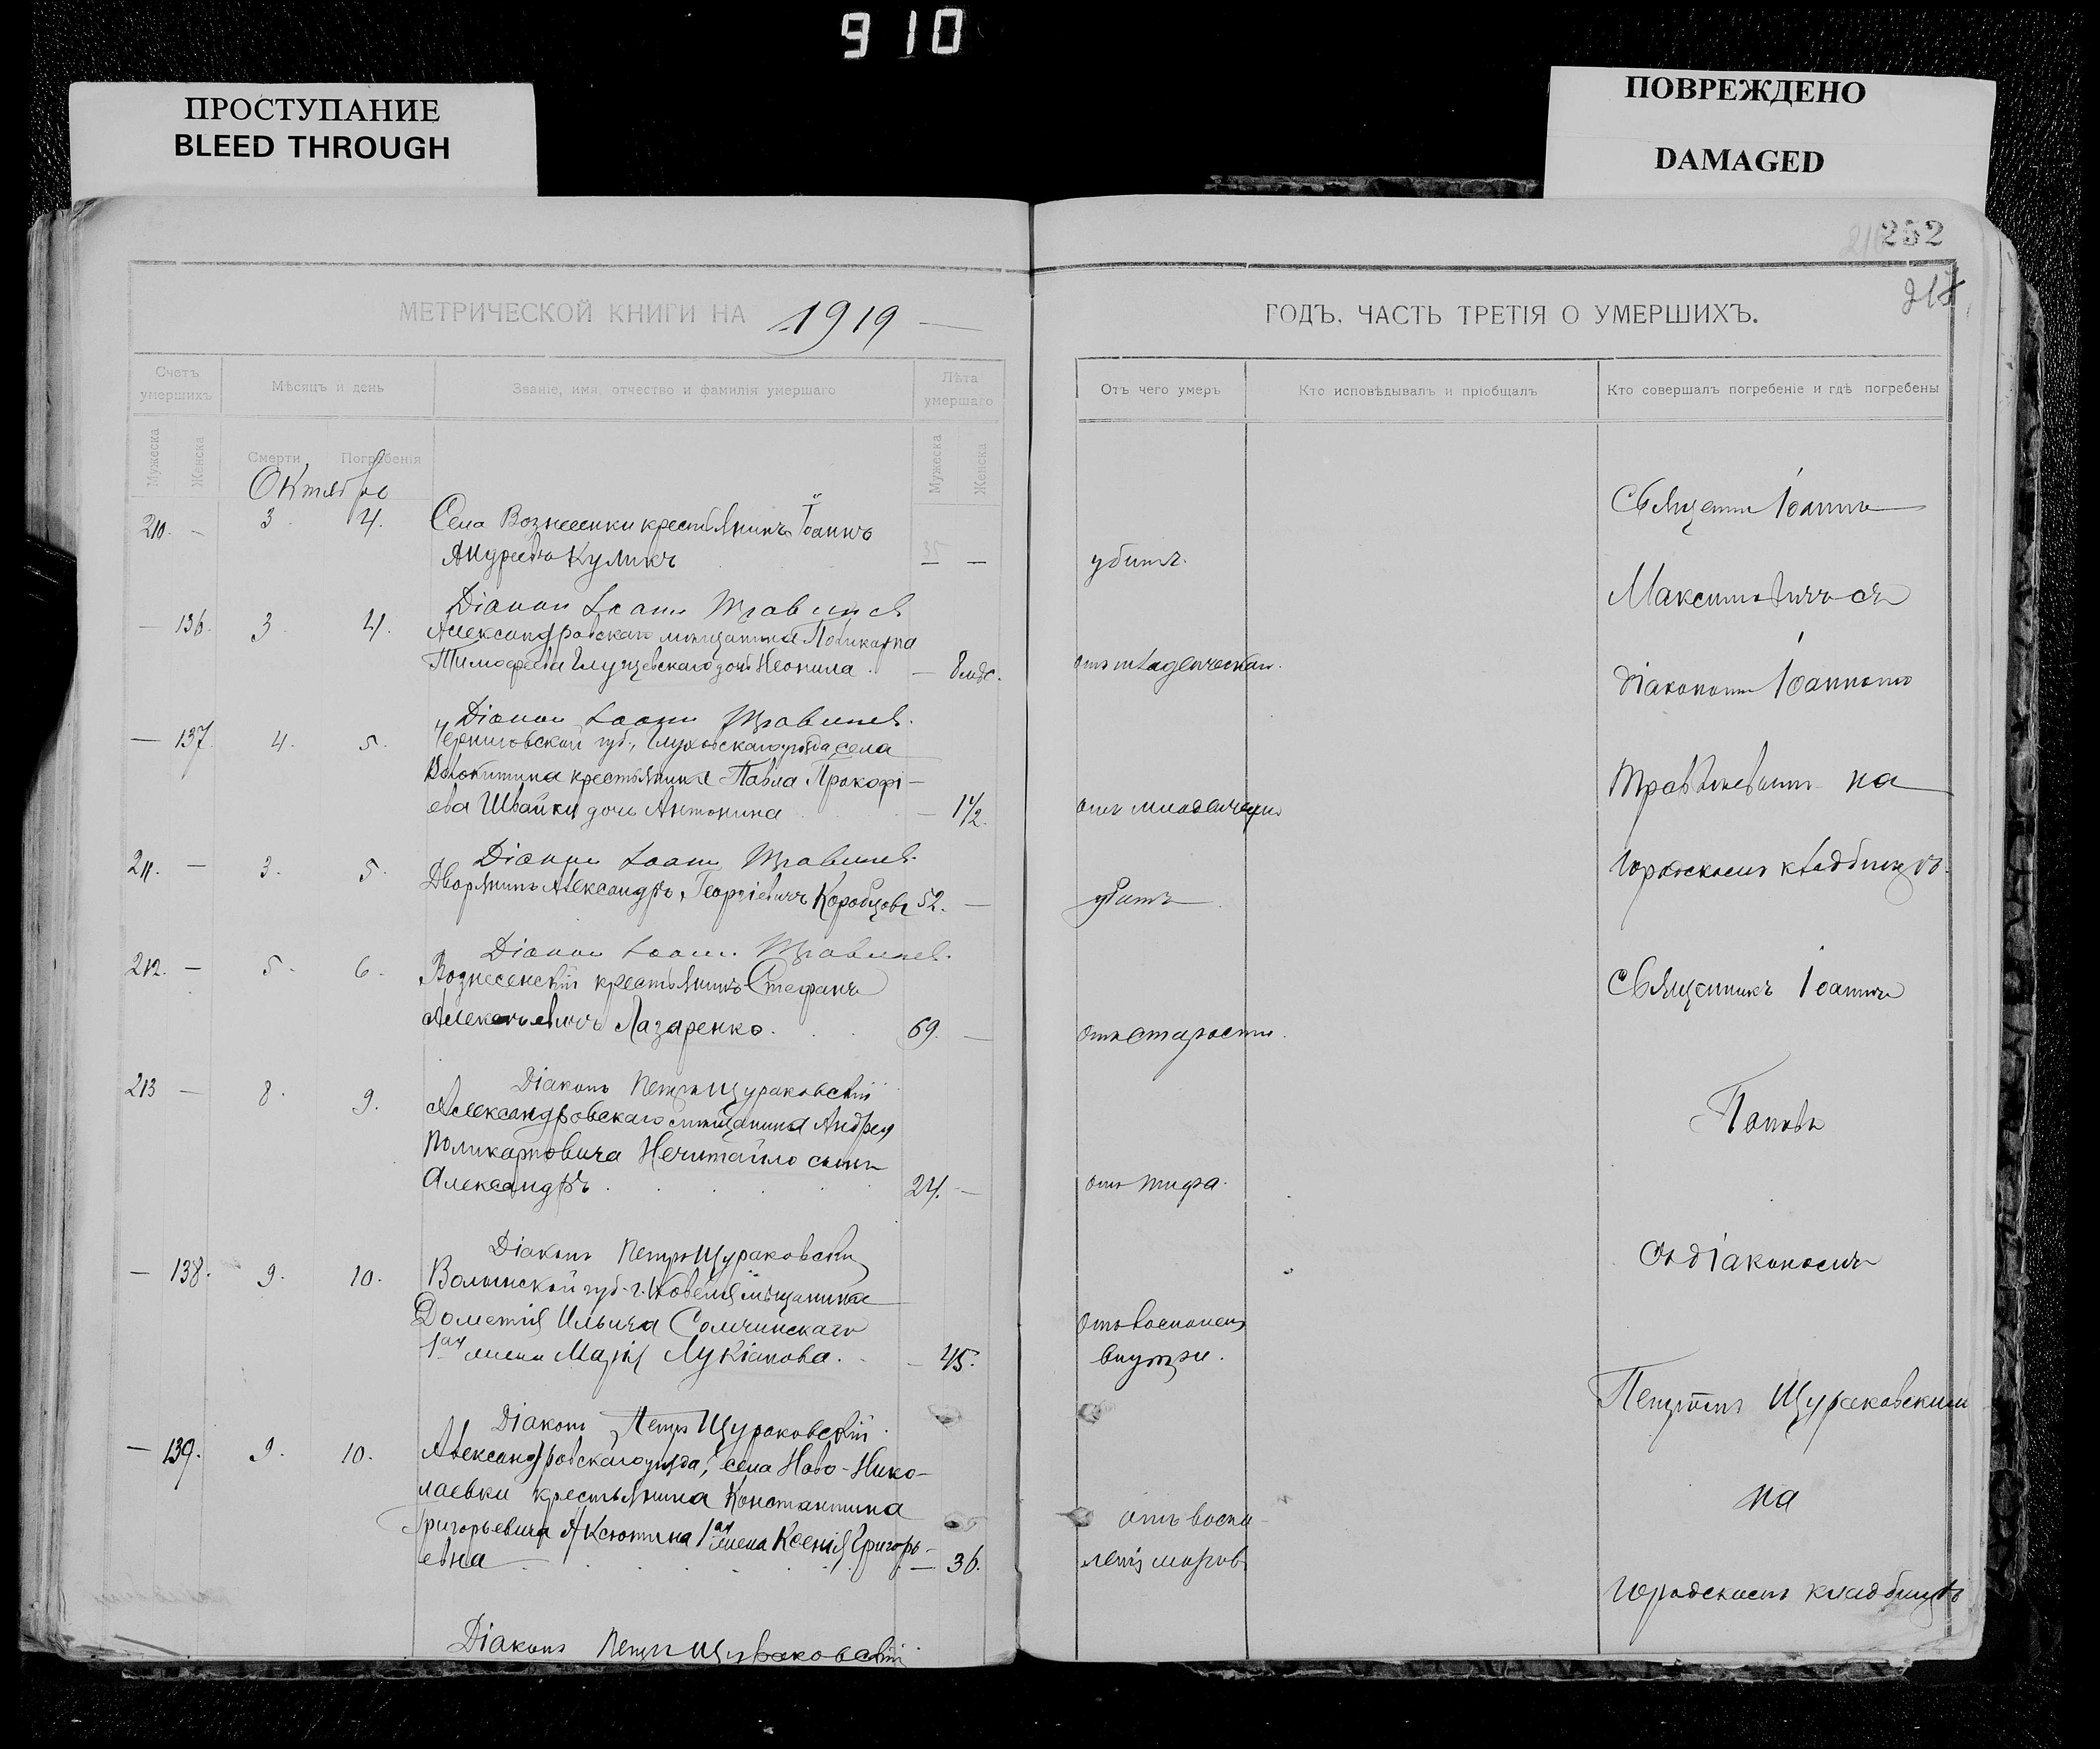 910
ПРОСТУПАНИЕ
BLEED THROUGH
ПОВРЕЖДЕНО
DAMAGED
252
МЕТРИЧЕСКОЙ КНИГИ НА 1919
Счетъ умершихъ
Мѣсяцъ и день
Званіе, имя, отчество и фамилія умершаго
Лѣта умершаго
Мужеска
Женска
Смерти
Погребенія
Мужеска
Женска
Октябрь
210. — 3. 4. Села Вознесенки крестьянинъ Іоаннъ
Андреевъ Куликъ 35 —
Діакон Іоанн Травинев
— 136. 3. 4. Александровскаго мѣщанина Поликарпа
Тимофеева Глущевскаго дочь Неонила — 8 мѣс.
Діакон Іоанн Травинев.
— 137. 4. 5. Черниговской губ., Глуховскаго уѣзда села
Волокитина крестьянина Павла Прокофі-
ева Швайки дочь Антонина — 1 1/2.
Діакон Іоанн Травинев.
211. — 3. 5. Дворянинъ Александръ Георгіевичъ Коробцовъ 52. —
Діакон Іоанн Травинев.
212. — 5. 6. Вознесенскій крестьянинъ Стефанъ
Лазаренко. 69. —
Діаконъ Петръ Щураковскій
213 — 8. 9. Александровскаго мѣщанина Андрея
Поликарповича Нечитайло сынъ
Александръ 24. —
Діаконъ Петръ Щураковскій
— 138. 9. 10. Волынской губ. г. Ковеля мѣщанина
Дометія Ильича Солчинскаго
жена Марія Лукіанова. — 45.
Діаконъ Петръ Щураковскій
— 139. 9. 10. Александровскаго уѣзда, села Ново-Нико-
лаевки крестьянина Константина
Григорьевича Аксютина 1ая жена Ксенія Григорь-
евна — 36.
Діаконъ Петръ Щураковскій
ГОДЪ, ЧАСТЬ ТРЕТІЯ О УМЕРШИХЪ.
Отъ чего умеръ
Кто исповѣдывалъ и пріобщалъ
Кто совершалъ погребеніе и гдѣ погребены
убитъ.
отъ младенческой.
отъ младенческой
убитъ
отъ старости.
отъ тифа.
отъ воспален
внутри.
отъ воспа-
ленія
Священ Іоаннъ
Максимовичъ съ
діакономъ Іоанномъ
Травиневымъ на
городскомъ кладбищѣ.
Священникъ Іоаннъ
Поповъ
съ діакономъ
Петромъ Щураковскимъ
на
городскомъ кладбищѣ